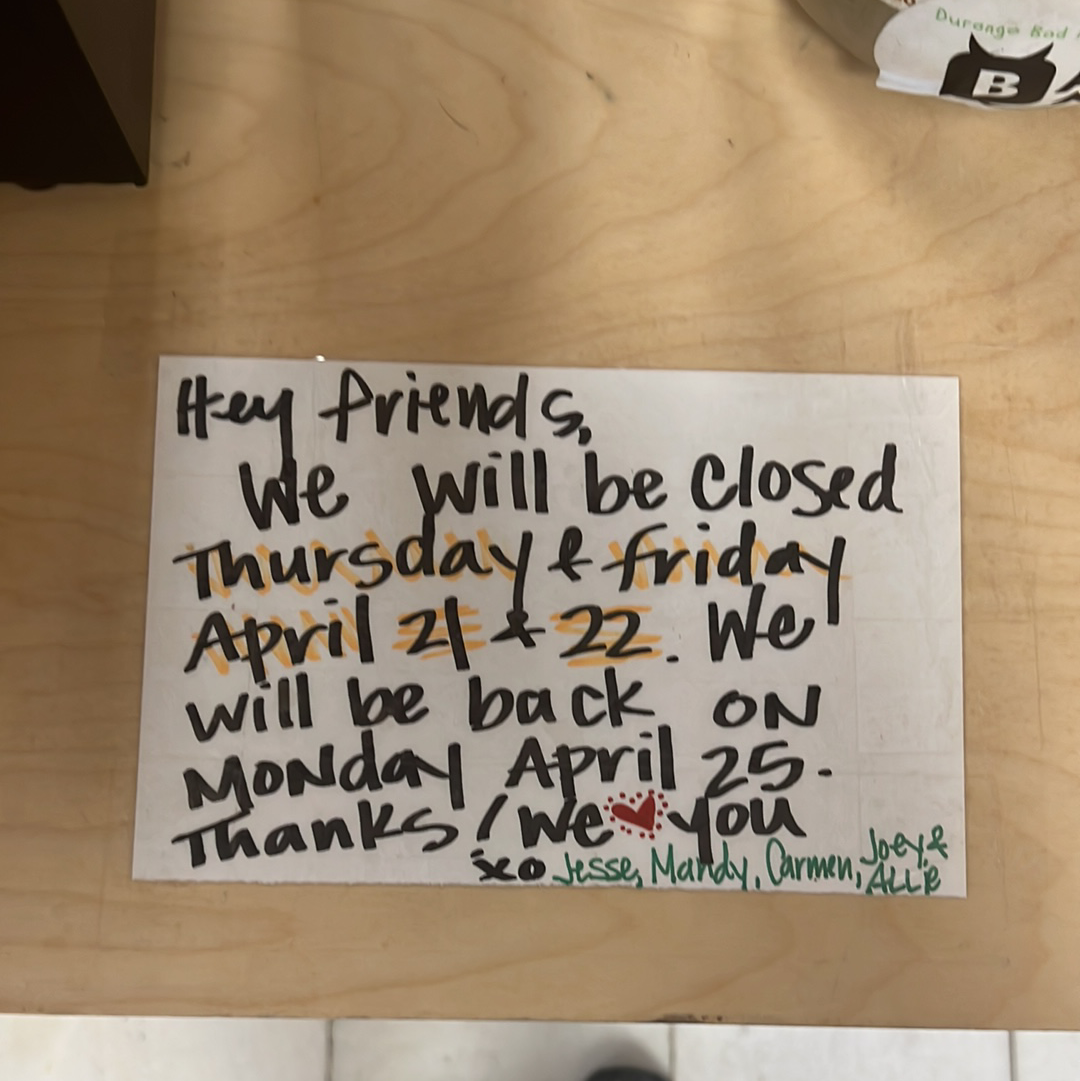 Durango Bad
B
Hey friends,
We will be closed
Thursday & friday
April 21 & 22. We
will be back ON
Monday April 25.
Thanks! We ❤ you
xo Jesse, Mandy, Carmen, Joey &
ALLIE